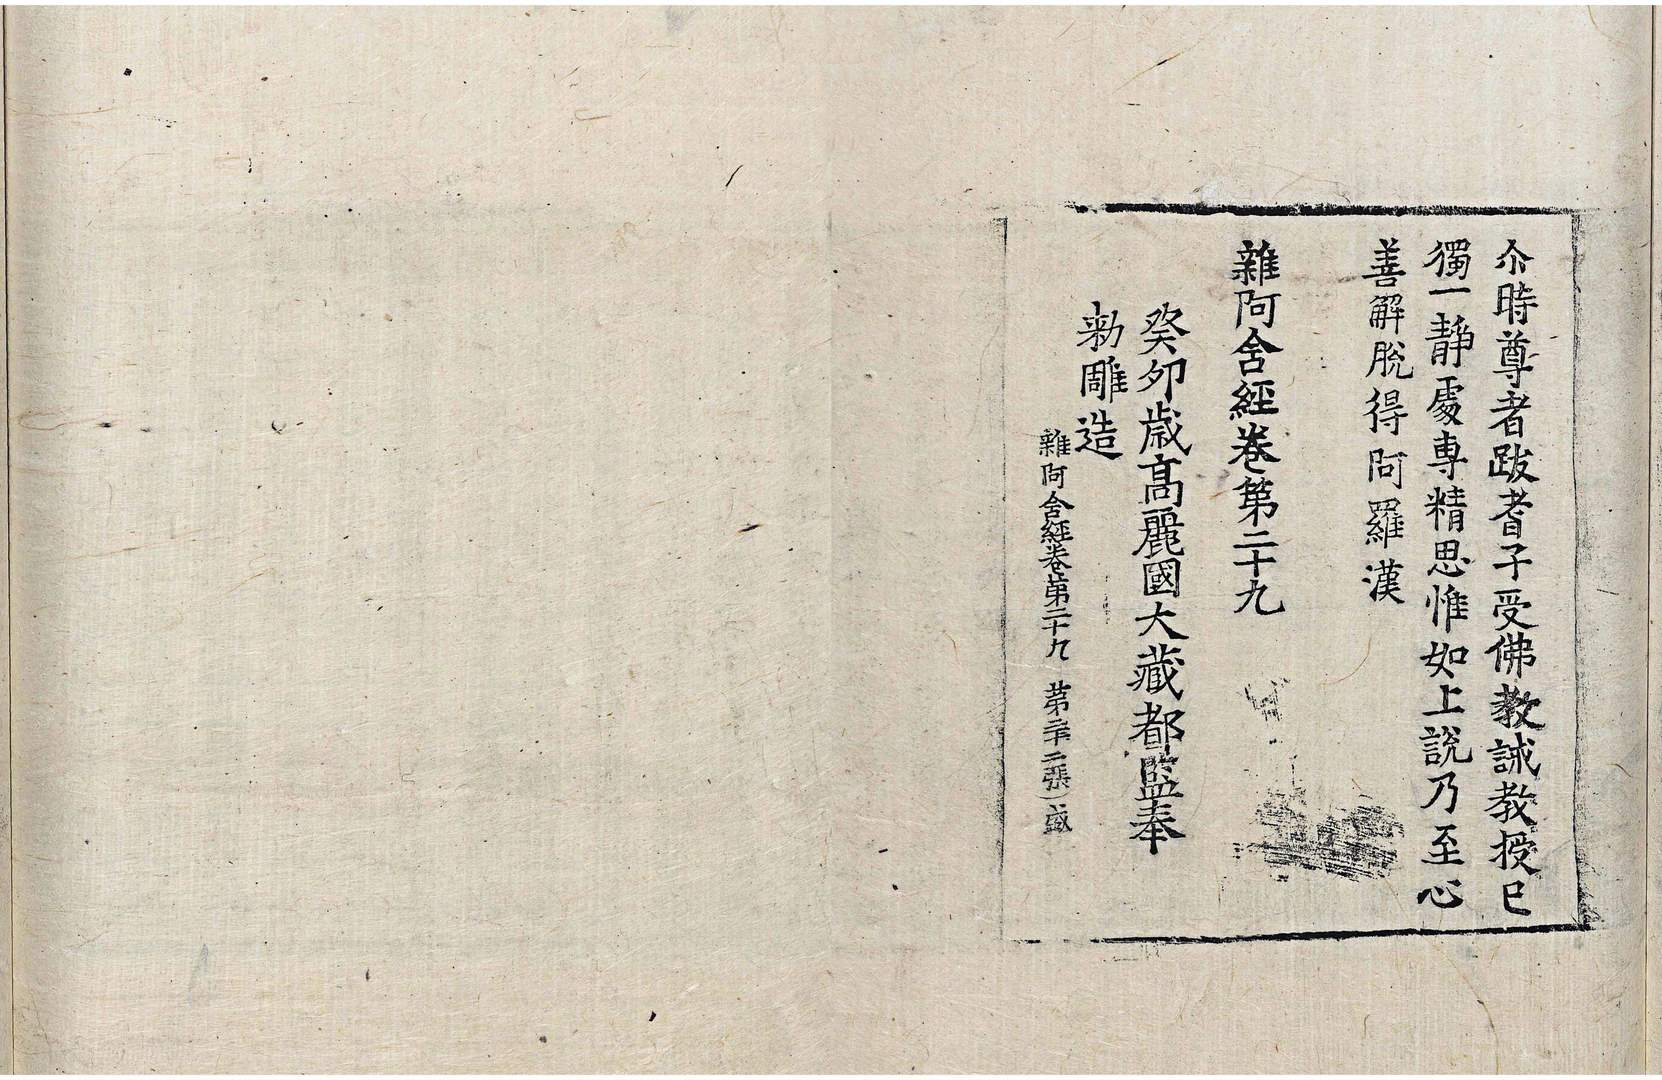 尒時尊者跋耆子受佛教誡教授已
獨一靜處專精思惟如上說乃至心
善解脫得阿羅漢
雜阿含經卷第二十九
癸卯歳高麗國大藏都監奉
勑雕造
雜阿含經卷第二十九 第二十二張 盛